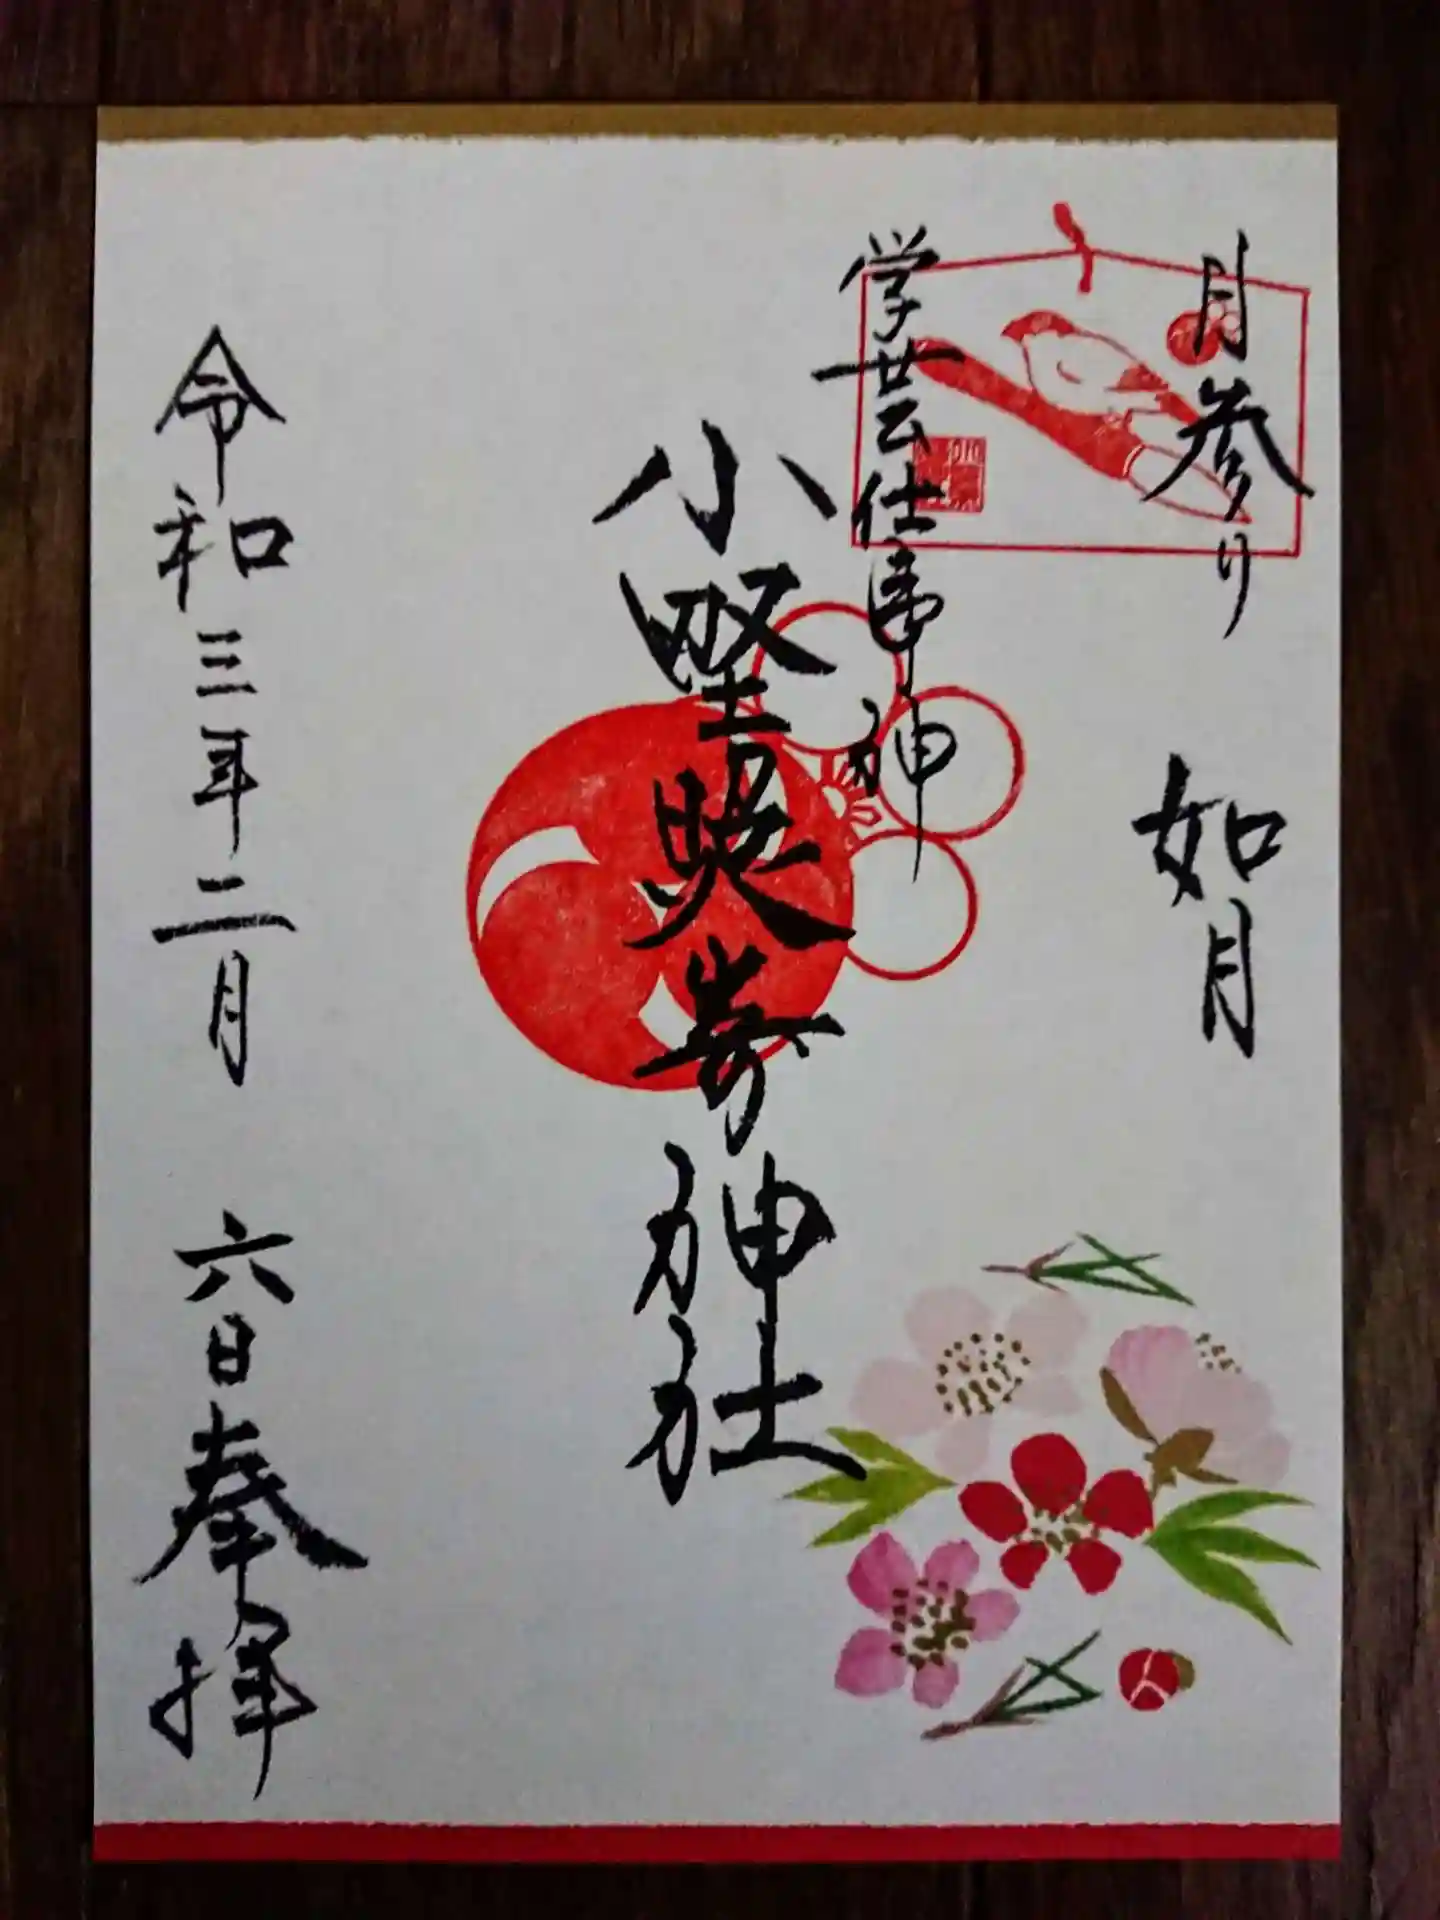 月参り
如月
学芸仕事神
小野照崎神社
令和三年二月 六日奉拝